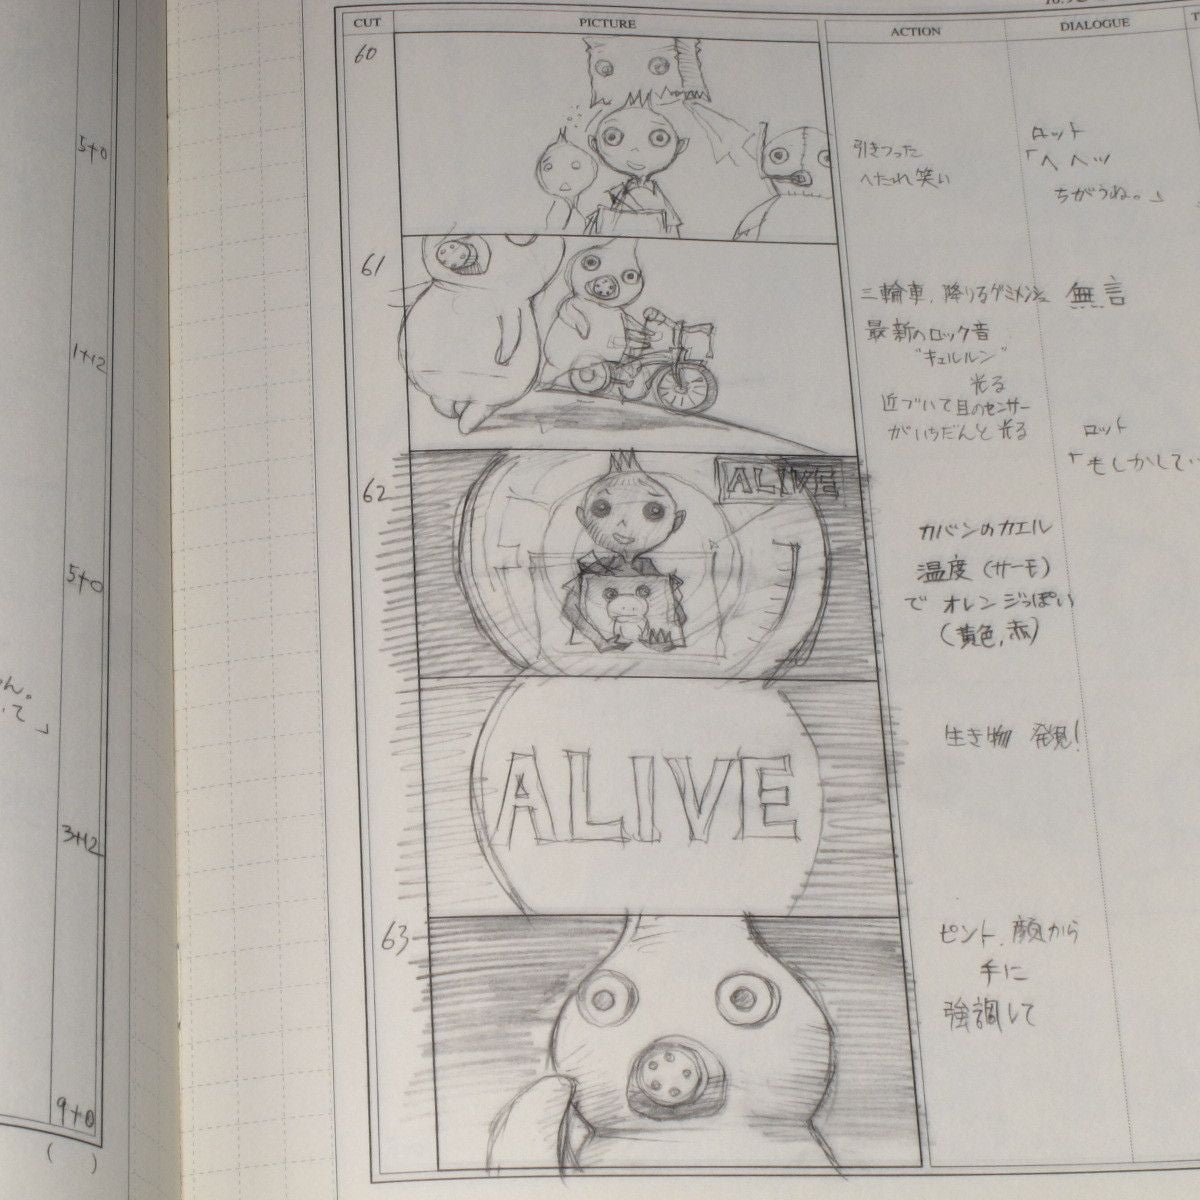 5+0
1+12
5+0
ん。
いて」
3+12
9+0
( )
CUT
PICTURE
ACTION
DIALOGUE
T
60
引きつった
へたれ笑い
ロット
「へヘッ
ちがうね。」
61
三輪車、降りる
無言
最新のロック音
"キュルルン"
光る
近づいて目のセンサー
がいちだんと光る
ロット
「もしかして…
62
ALIVE
カバンのカエル
温度(サーモ)
で オレンジっぽい
(黄色,赤)
ALIVE
生き物 発見!
63
ピント、顔から
手に
強調して